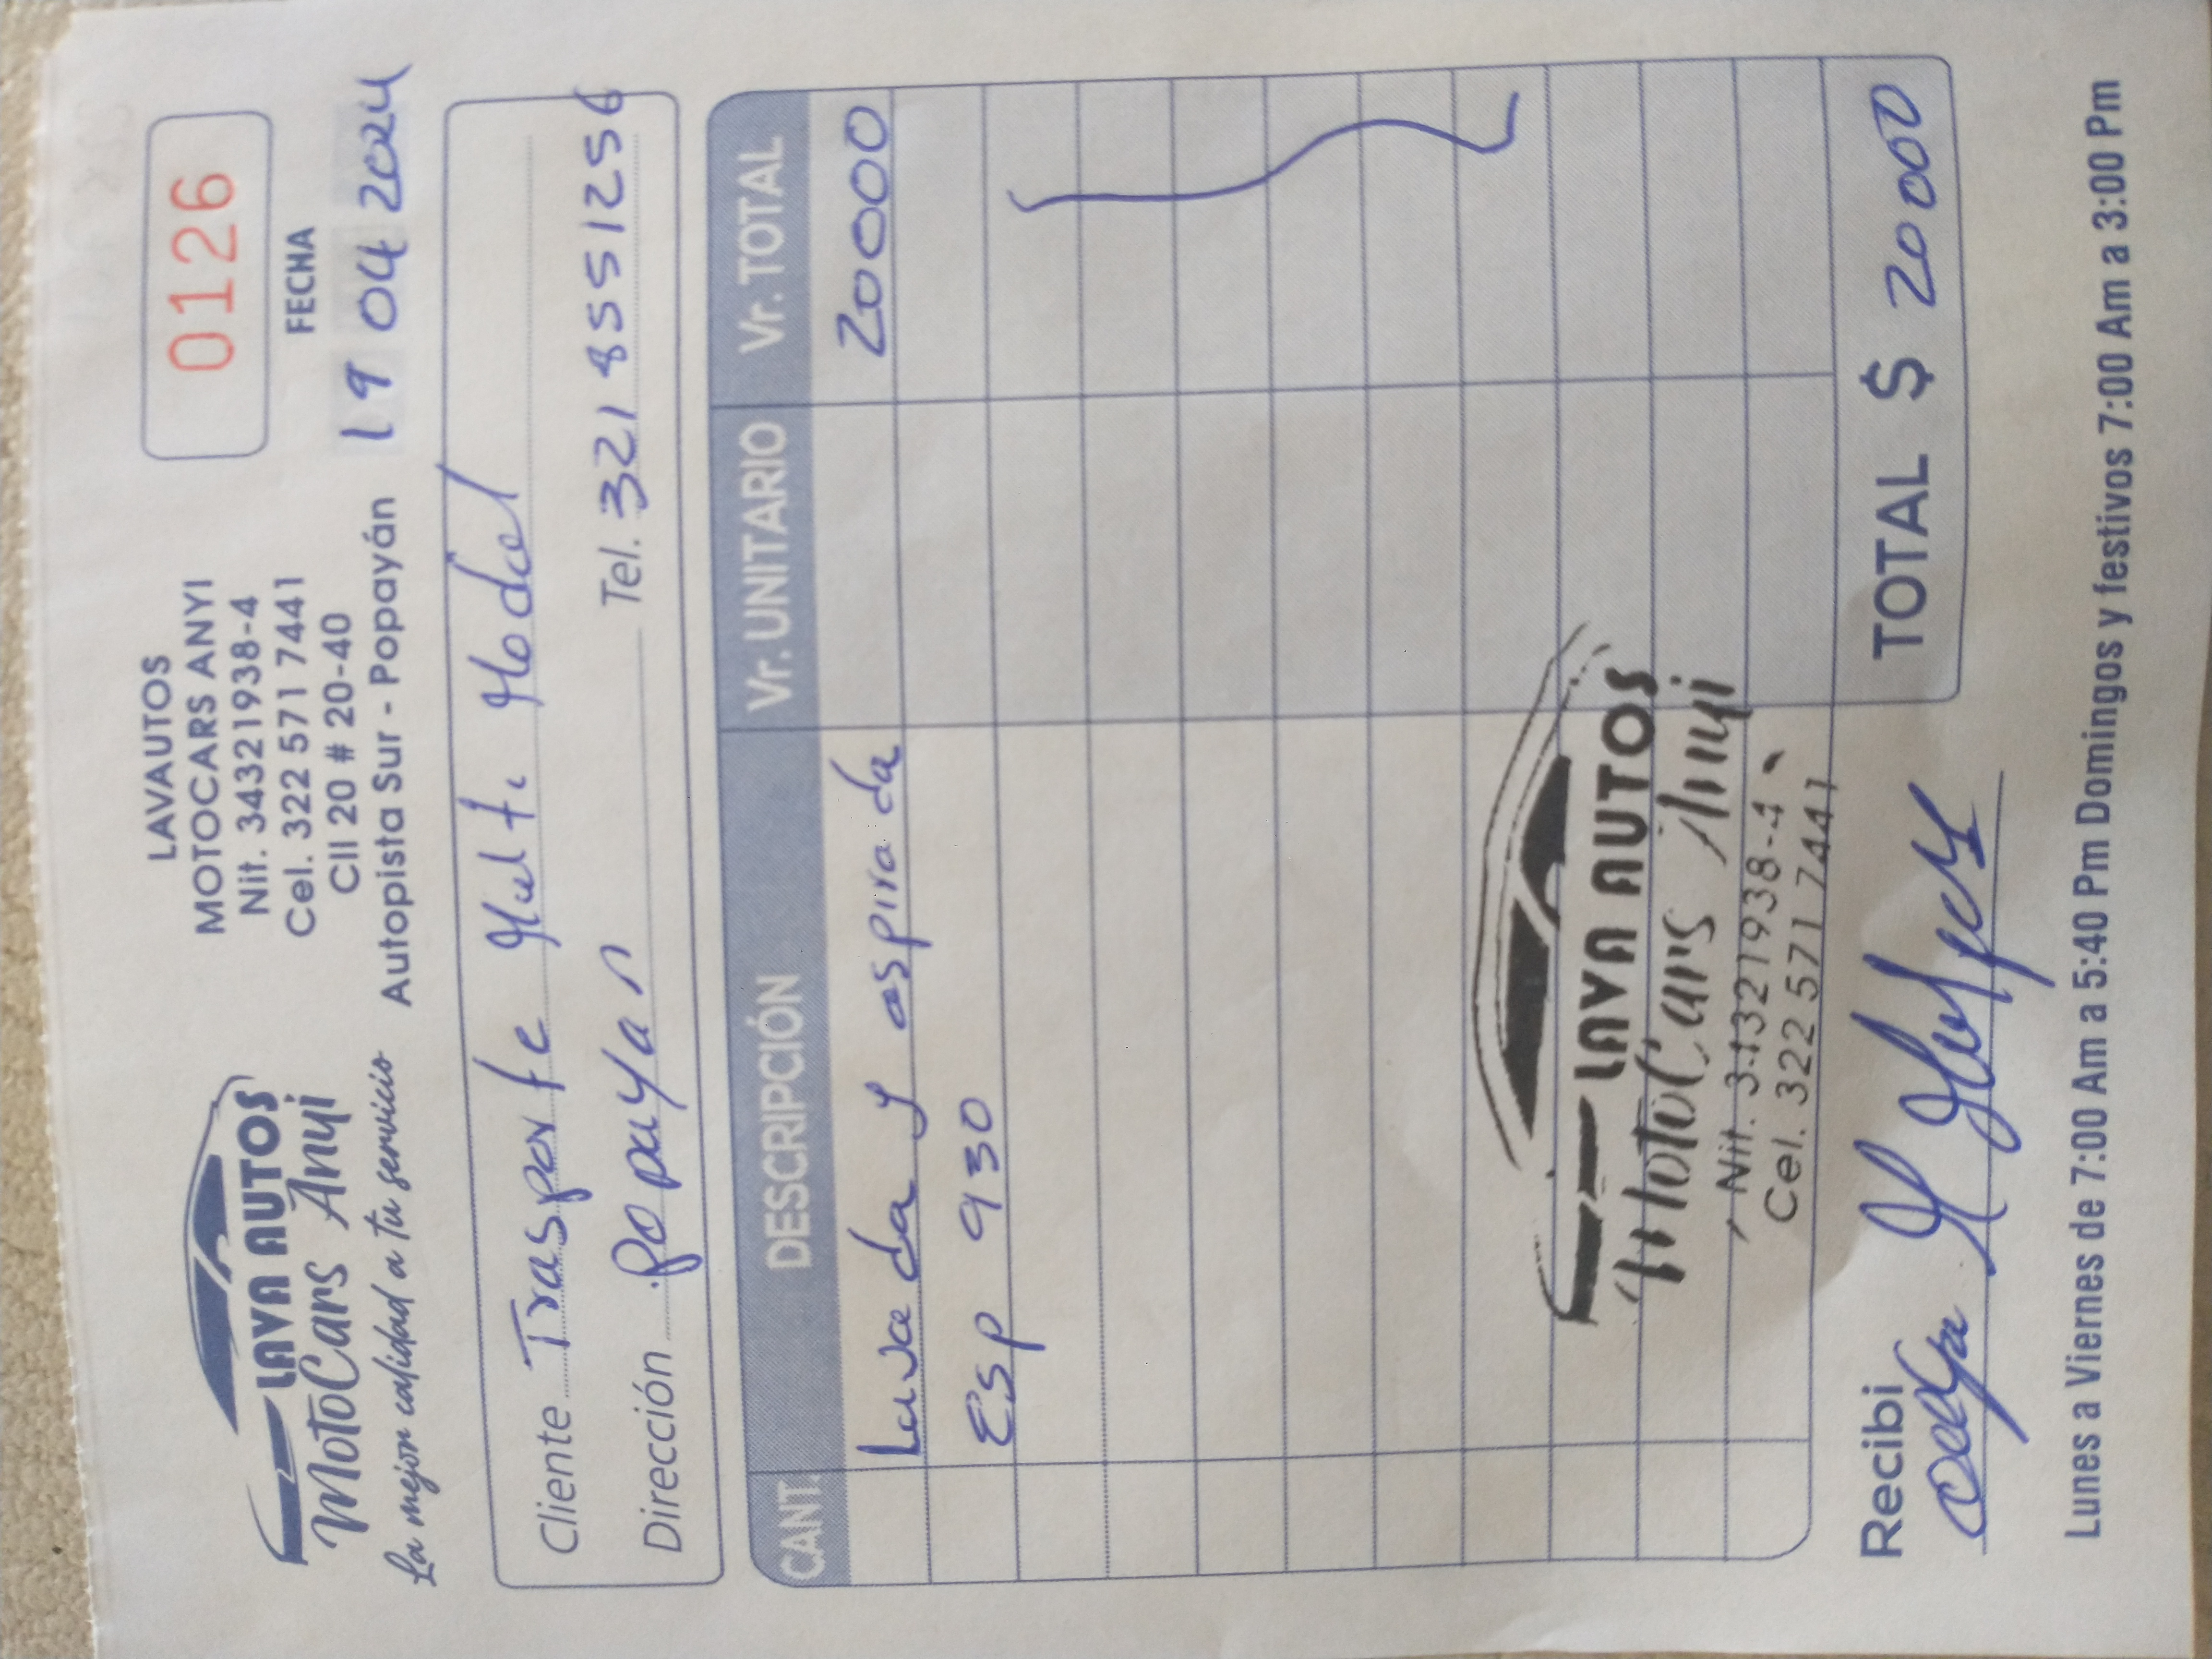 LAVA AUTOS
MotoCars Anyi
La mejor calidad a tu servicio
LAVAUTOS
MOTOCARS ANYI
Nit. 34321938-4
Cel. 322 571 7441
Cll 20 # 20-40
Autopista Sur - Popayán
0126
FECHA
19 04 2024
Cliente Trasporte Multi Modal
Dirección Popayan Tel. 321 8551256
CANT. DESCRIPCIÓN Vr. UNITARIO Vr. TOTAL
Lavada y aspirada 20000
ESP 930
LAVA AUTOS
MotoCars Anyi
Nit. 34321938-4
Cel. 322 571 7441
TOTAL $ 20000
Recibi
Lunes a Viernes de 7:00 Am a 5:40 Pm Domingos y festivos 7:00 Am a 3:00 Pm